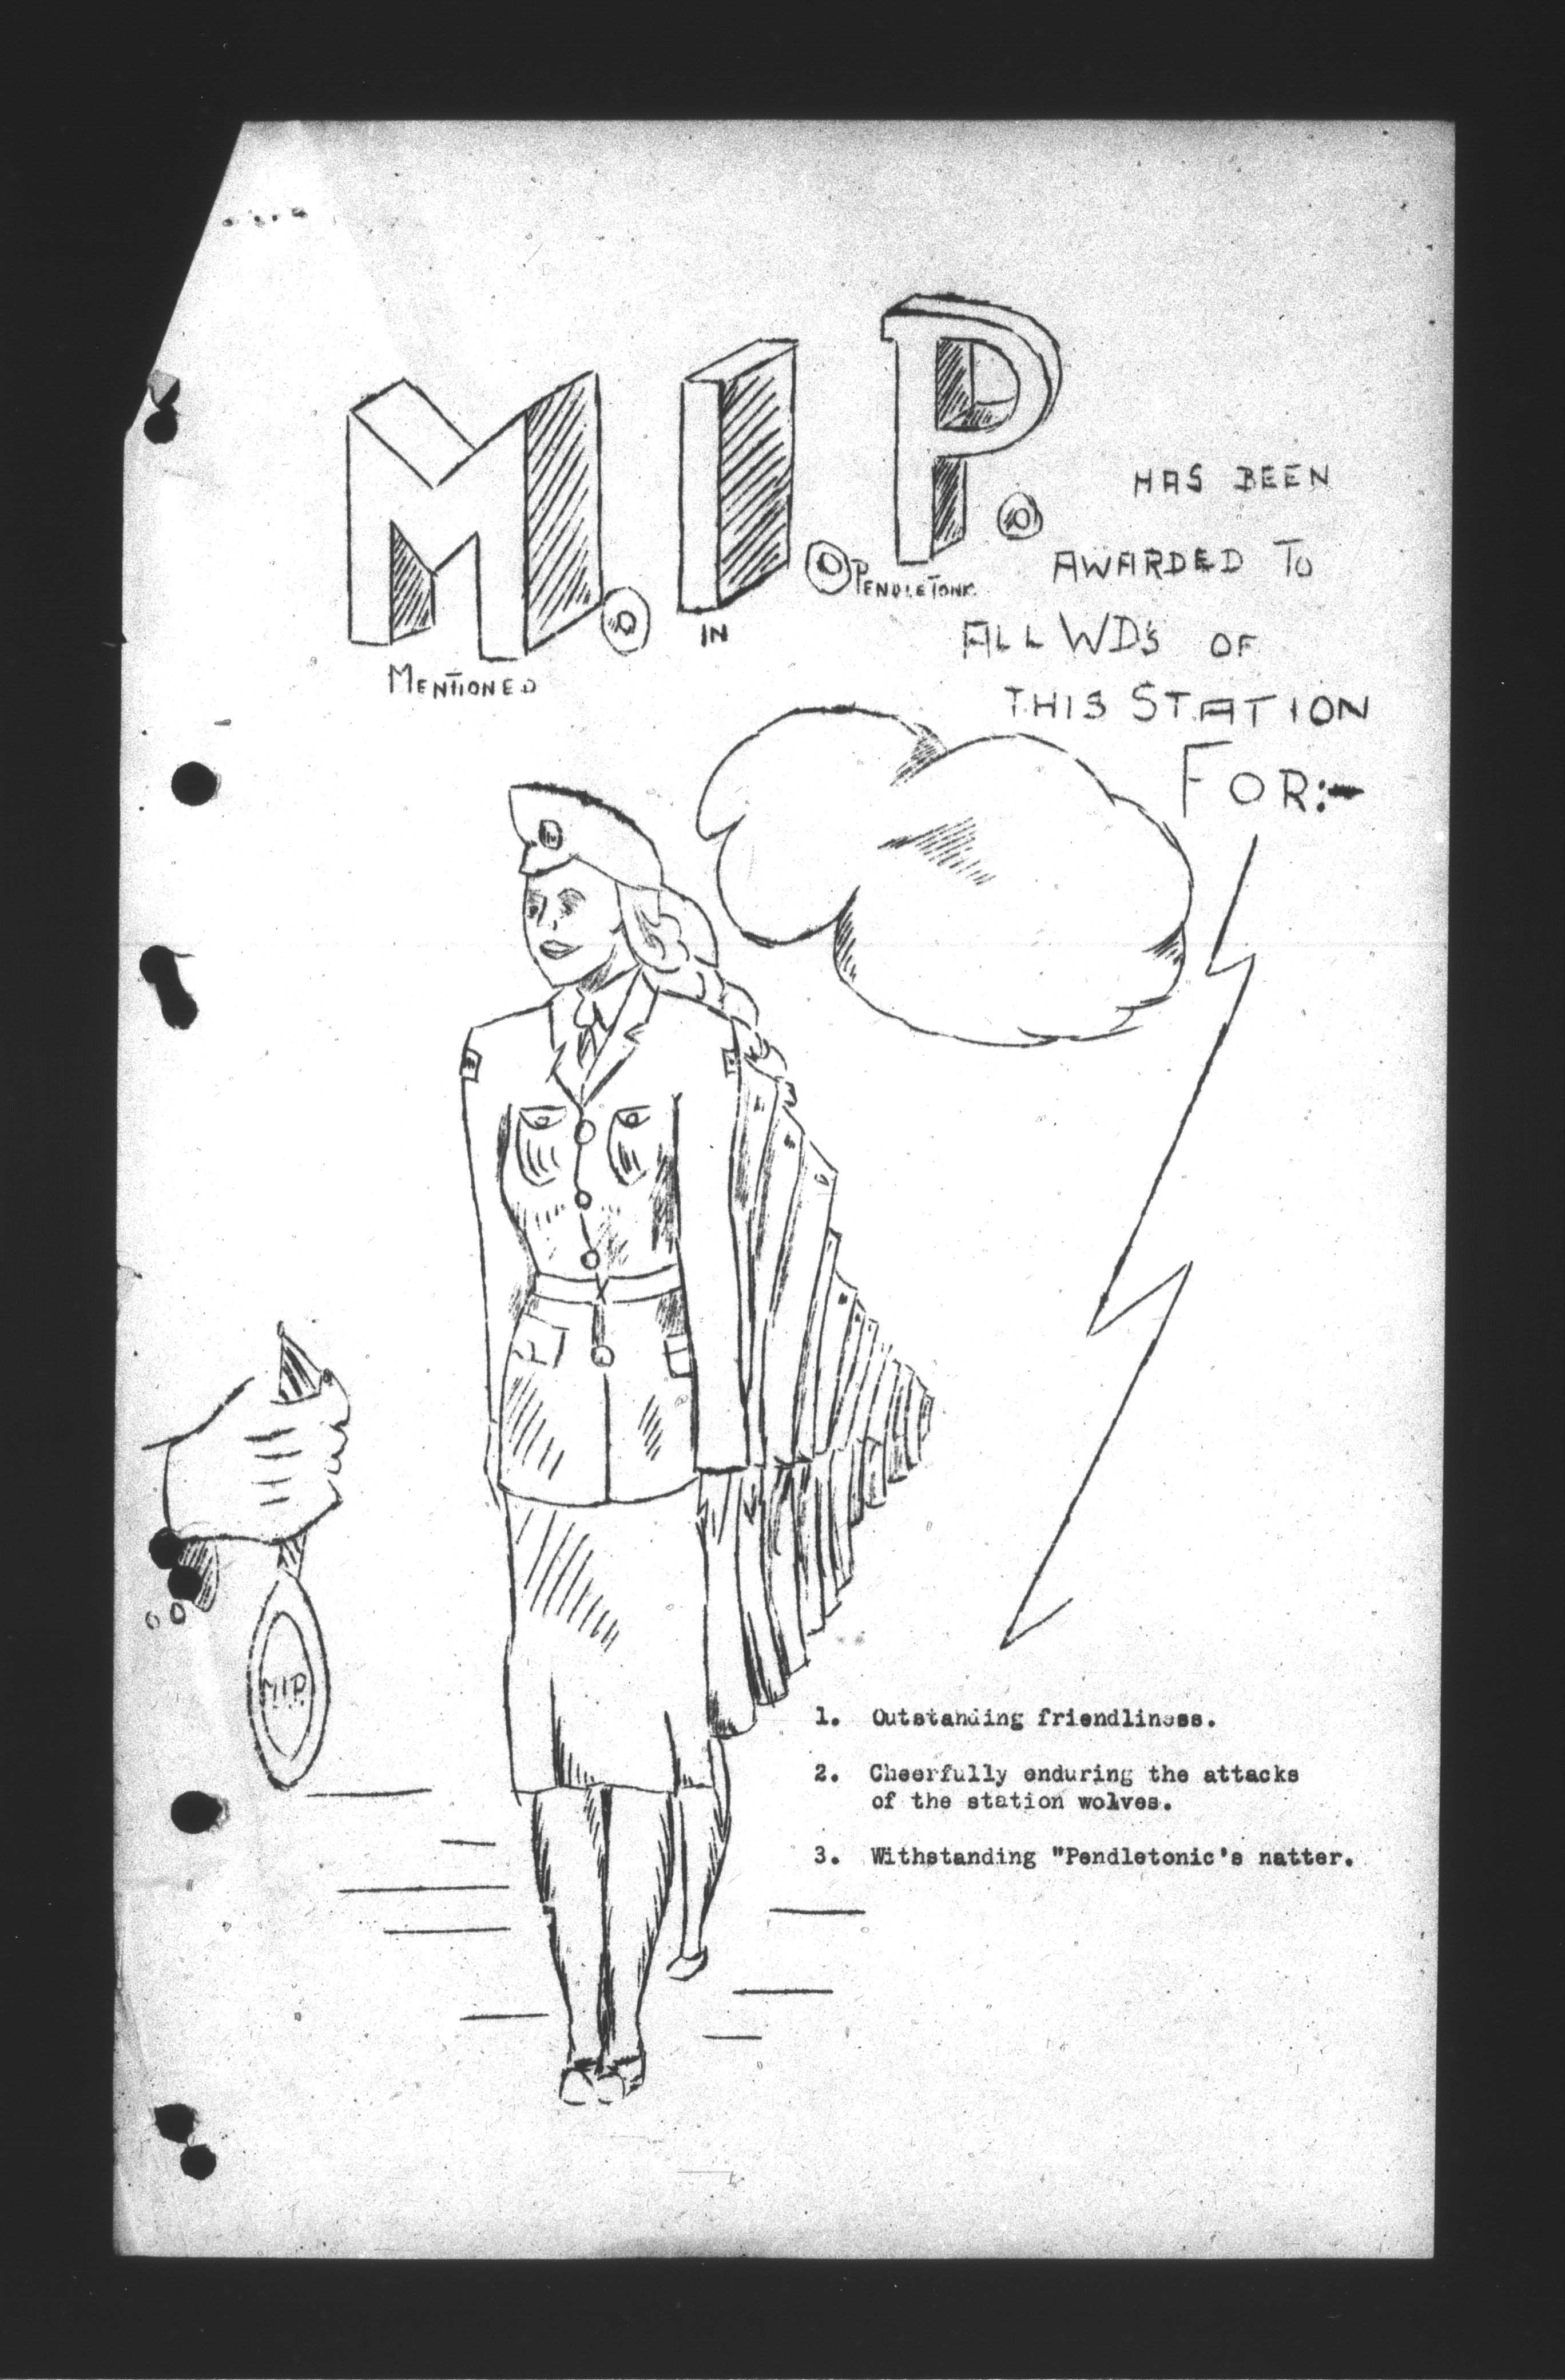 M.I.P.
MENTIONED
IN
PENDLETONIC
HAS BEEN
AWARDED TO
ALL WD's OF
THIS STATION
FOR:-
M.I.P.
1. Outstanding friendliness.
2. Cheerfully enduring the attacks
of the station wolves.
3. Withstanding "Pendletonic's natter.